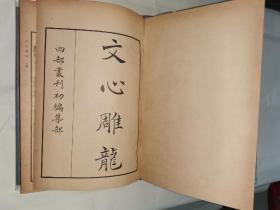 文心雕龍
四部叢刊初編集部